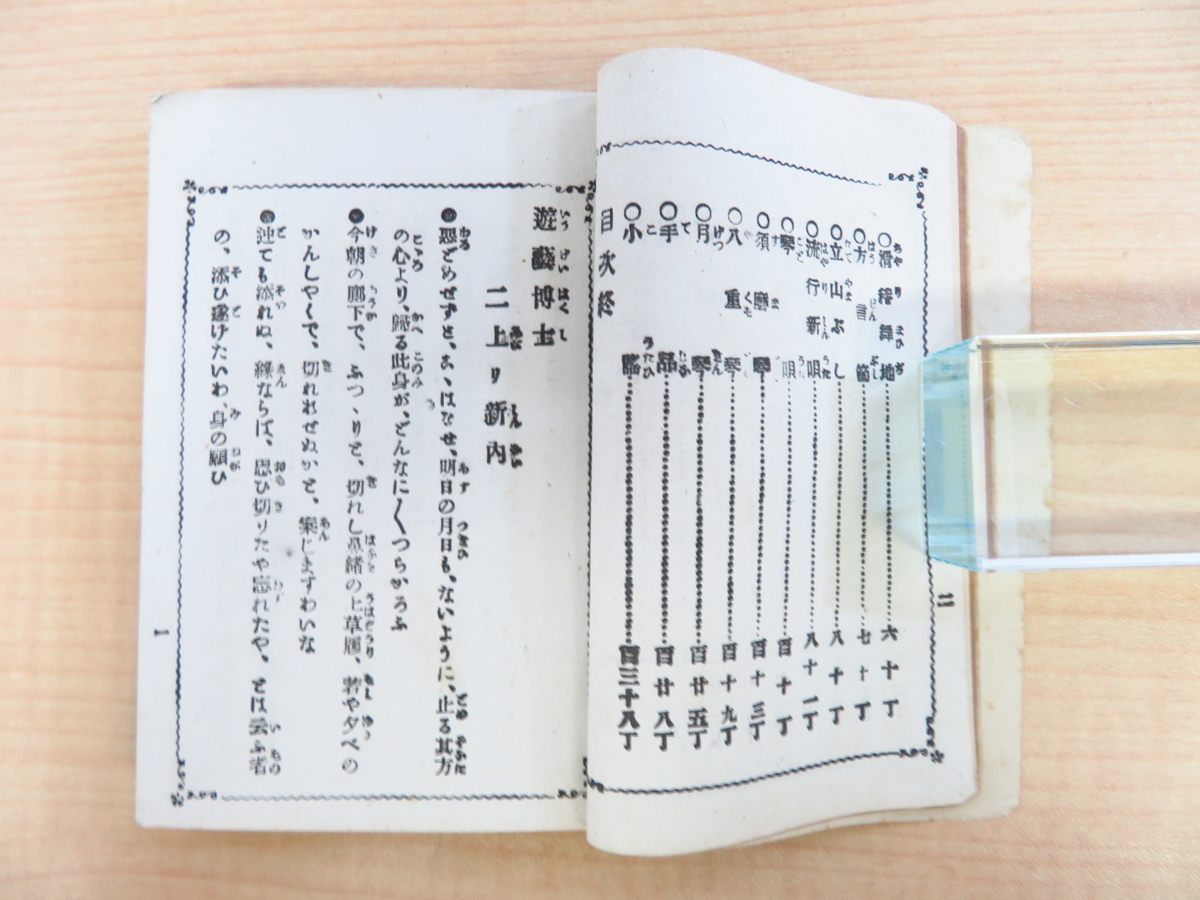 二
〇滑稽舞地 六十丁
〇方言 七十丁
〇立山ぶし 八十丁
〇流行新唄 八十一丁
〇琴唄 百十丁
〇須磨琴 百十三丁
〇八重琴 百十九丁
〇月琴 百廿五丁
〇手品 百廿八丁
〇小謡 百三十八丁
目次終
遊藝博士
二上り新内
●惡どめせずと、こゝはなせ、明日の月日も、ないように、止る其方
の心より、歸る此身が、どんなに〱つらかろふ
●今朝の廊下で、ふつゝりと、切れし鼻緒の上草履、若や夕べの
かんしやくで、切れれせぬかと、案じますわいな
●連ても添れぬ、縁ならば、思ひ切りたや忘れたや、とは云ふ者
の、添ひ遂げたいわ、身の願ひ
1